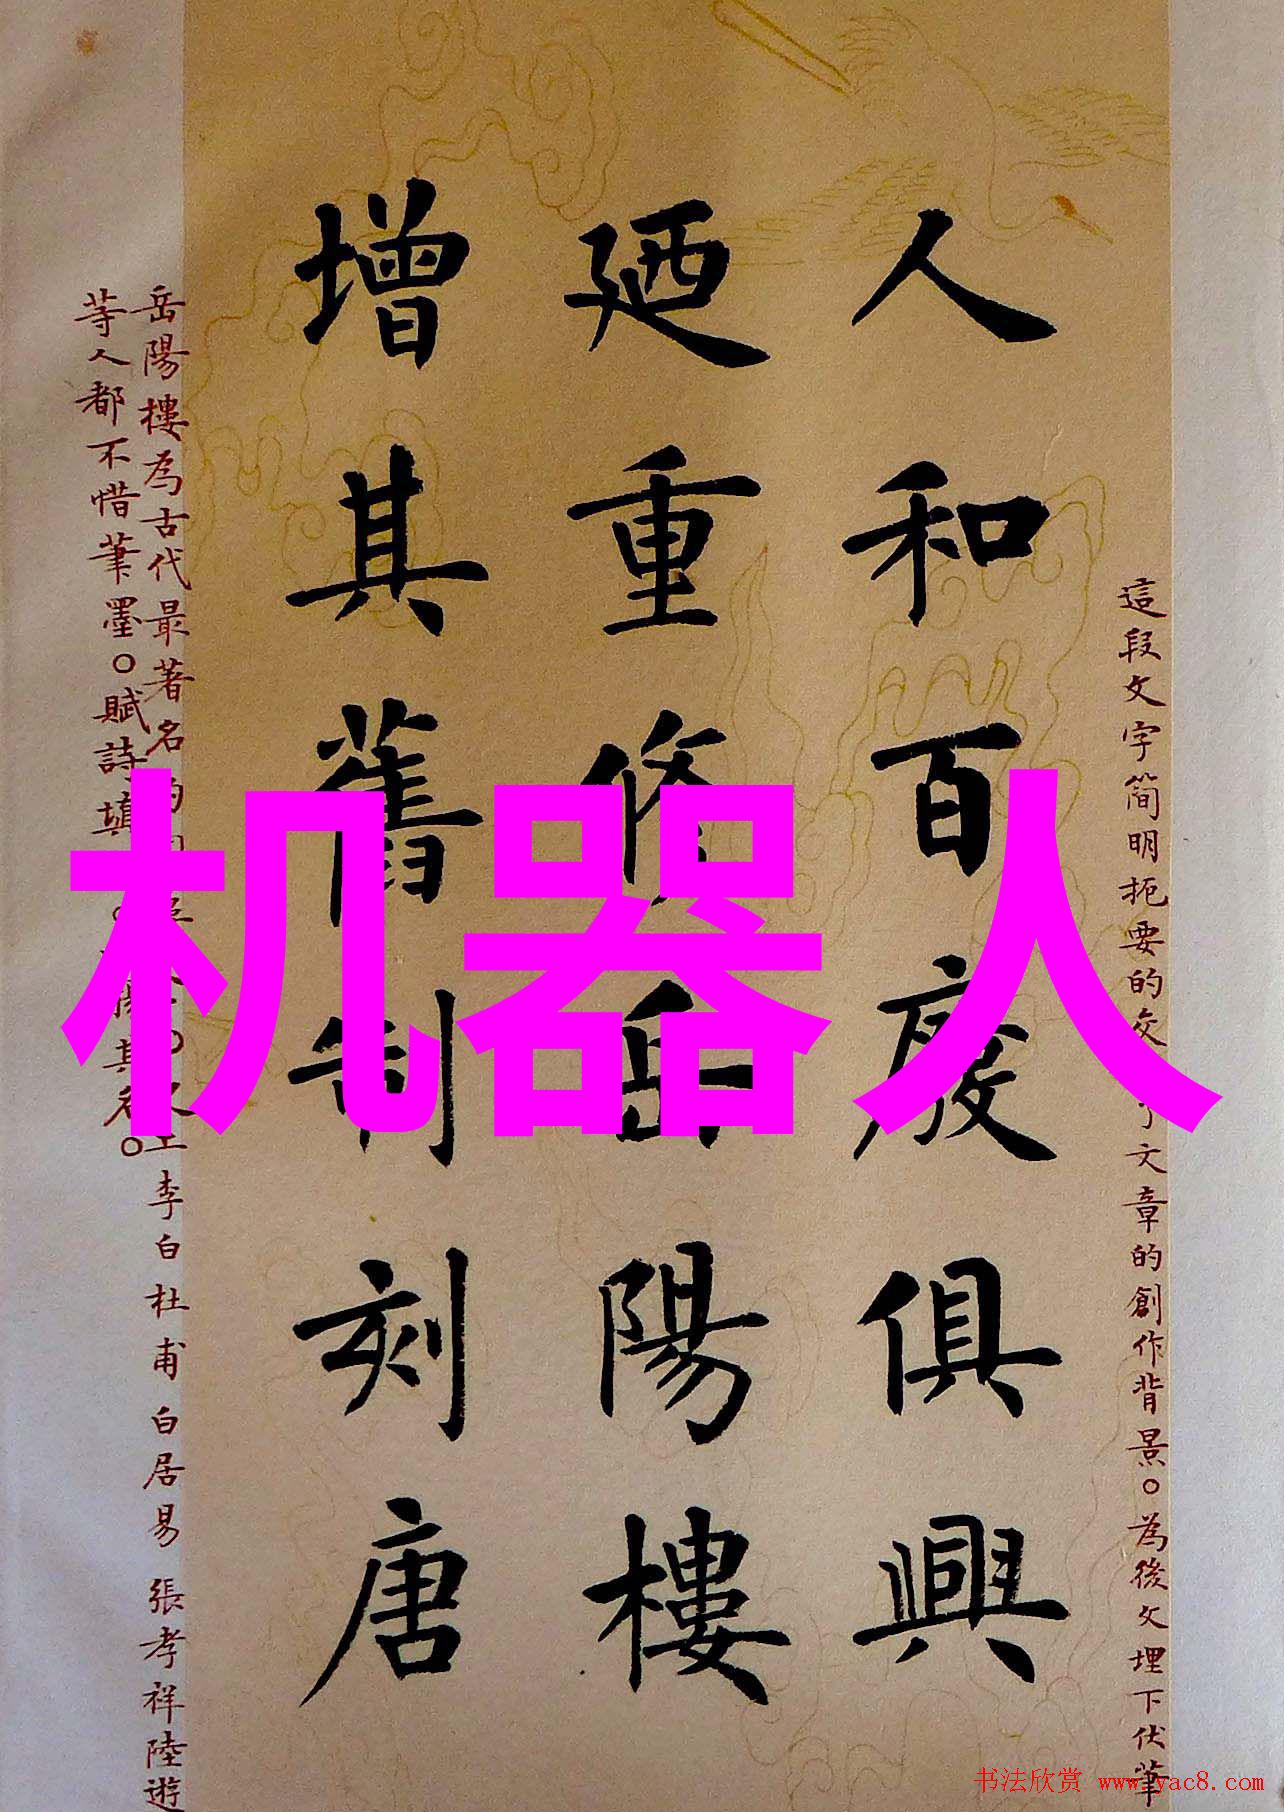 這段文字简明扼要的交了文章的創作背景。為後文埋下伏筆
人和百廢俱興
廼重修岳陽樓
增其舊制刻唐
岳陽樓為古代最著名的李白杜甫白居易張孝祥陸遊
等人都不惜筆墨。賦詩填其名。
机器人
书法欣赏 www.yac8.com